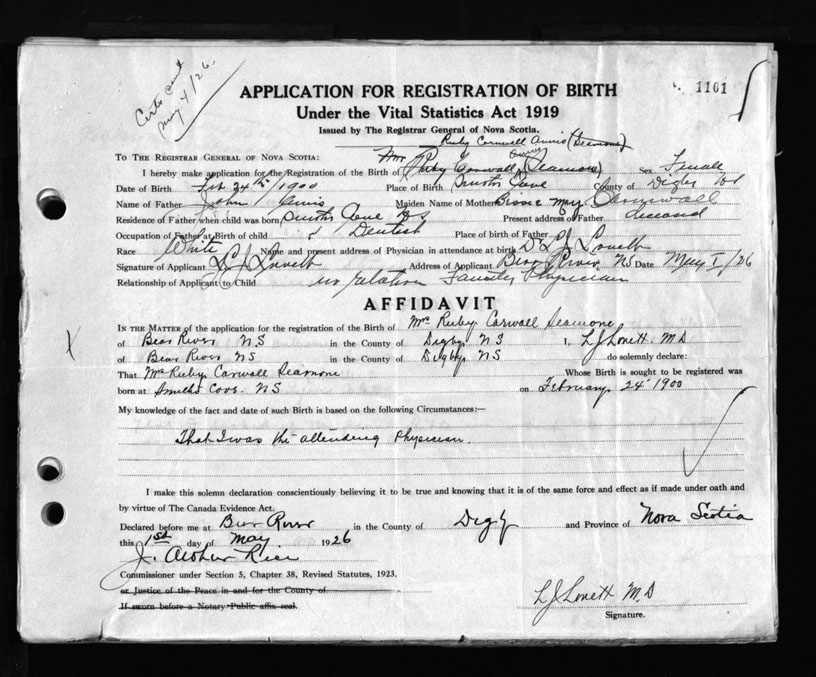 Certs sent
May 4/26.
1101
APPLICATION FOR REGISTRATION OF BIRTH
Under the Vital Statistics Act 1919
Issued by The Registrar General of Nova Scotia.
Ruby Cornwall Annis (Seamone)
TO THE REGISTRAR GENERAL OF NOVA SCOTIA:
I hereby make application for the Registration of the Birth of Mrs Ruby Cornwall Annis (Seamone) Sex Female
Date of Birth Feb 24th/1900 Place of Birth Smiths Cove County of Digby NS
Name of Father John Annis Maiden Name of Mother Bessie May Cornwall
Residence of Father when child was born Smiths Cove NS Present address of Father deceased
Occupation of Father at Birth of child Dentist Place of birth of Father
Race White Name and present address of Physician in attendance at birth Dr L J Lovett
Signature of Applicant L J Lovett Address of Applicant Bear River NS Date May 1/26
Relationship of Applicant to Child no relation Family Physician
AFFIDAVIT
IN THE MATTER of the application for the registration of the Birth of Mrs Ruby Carwall Seamone
of Bear River NS in the County of Digby NS I, L J Lovett. M D
of Bear River NS in the County of Digby NS do solemnly declare:
That Mrs Ruby Carwall Seamone Whose Birth is sought to be registered was
born at Smiths Cove NS on February 24 1900
My knowledge of the fact and date of such Birth is based on the following Circumstances:—
That I was the attending Physician.
I make this solemn declaration conscientiously believing it to be true and knowing that it is of the same force and effect as if made under oath and
by virtue of The Canada Evidence Act.
Declared before me at Bear River in the County of Digby and Province of Nova Scotia
this 1st day of May 1926
J. Arthur Rice
Commissioner under Section 5, Chapter 38, Revised Statutes, 1923.
or Justice of the Peace in and for the County of
If sworn before a Notary Public affix seal.
L J Lovett M.D
Signature.